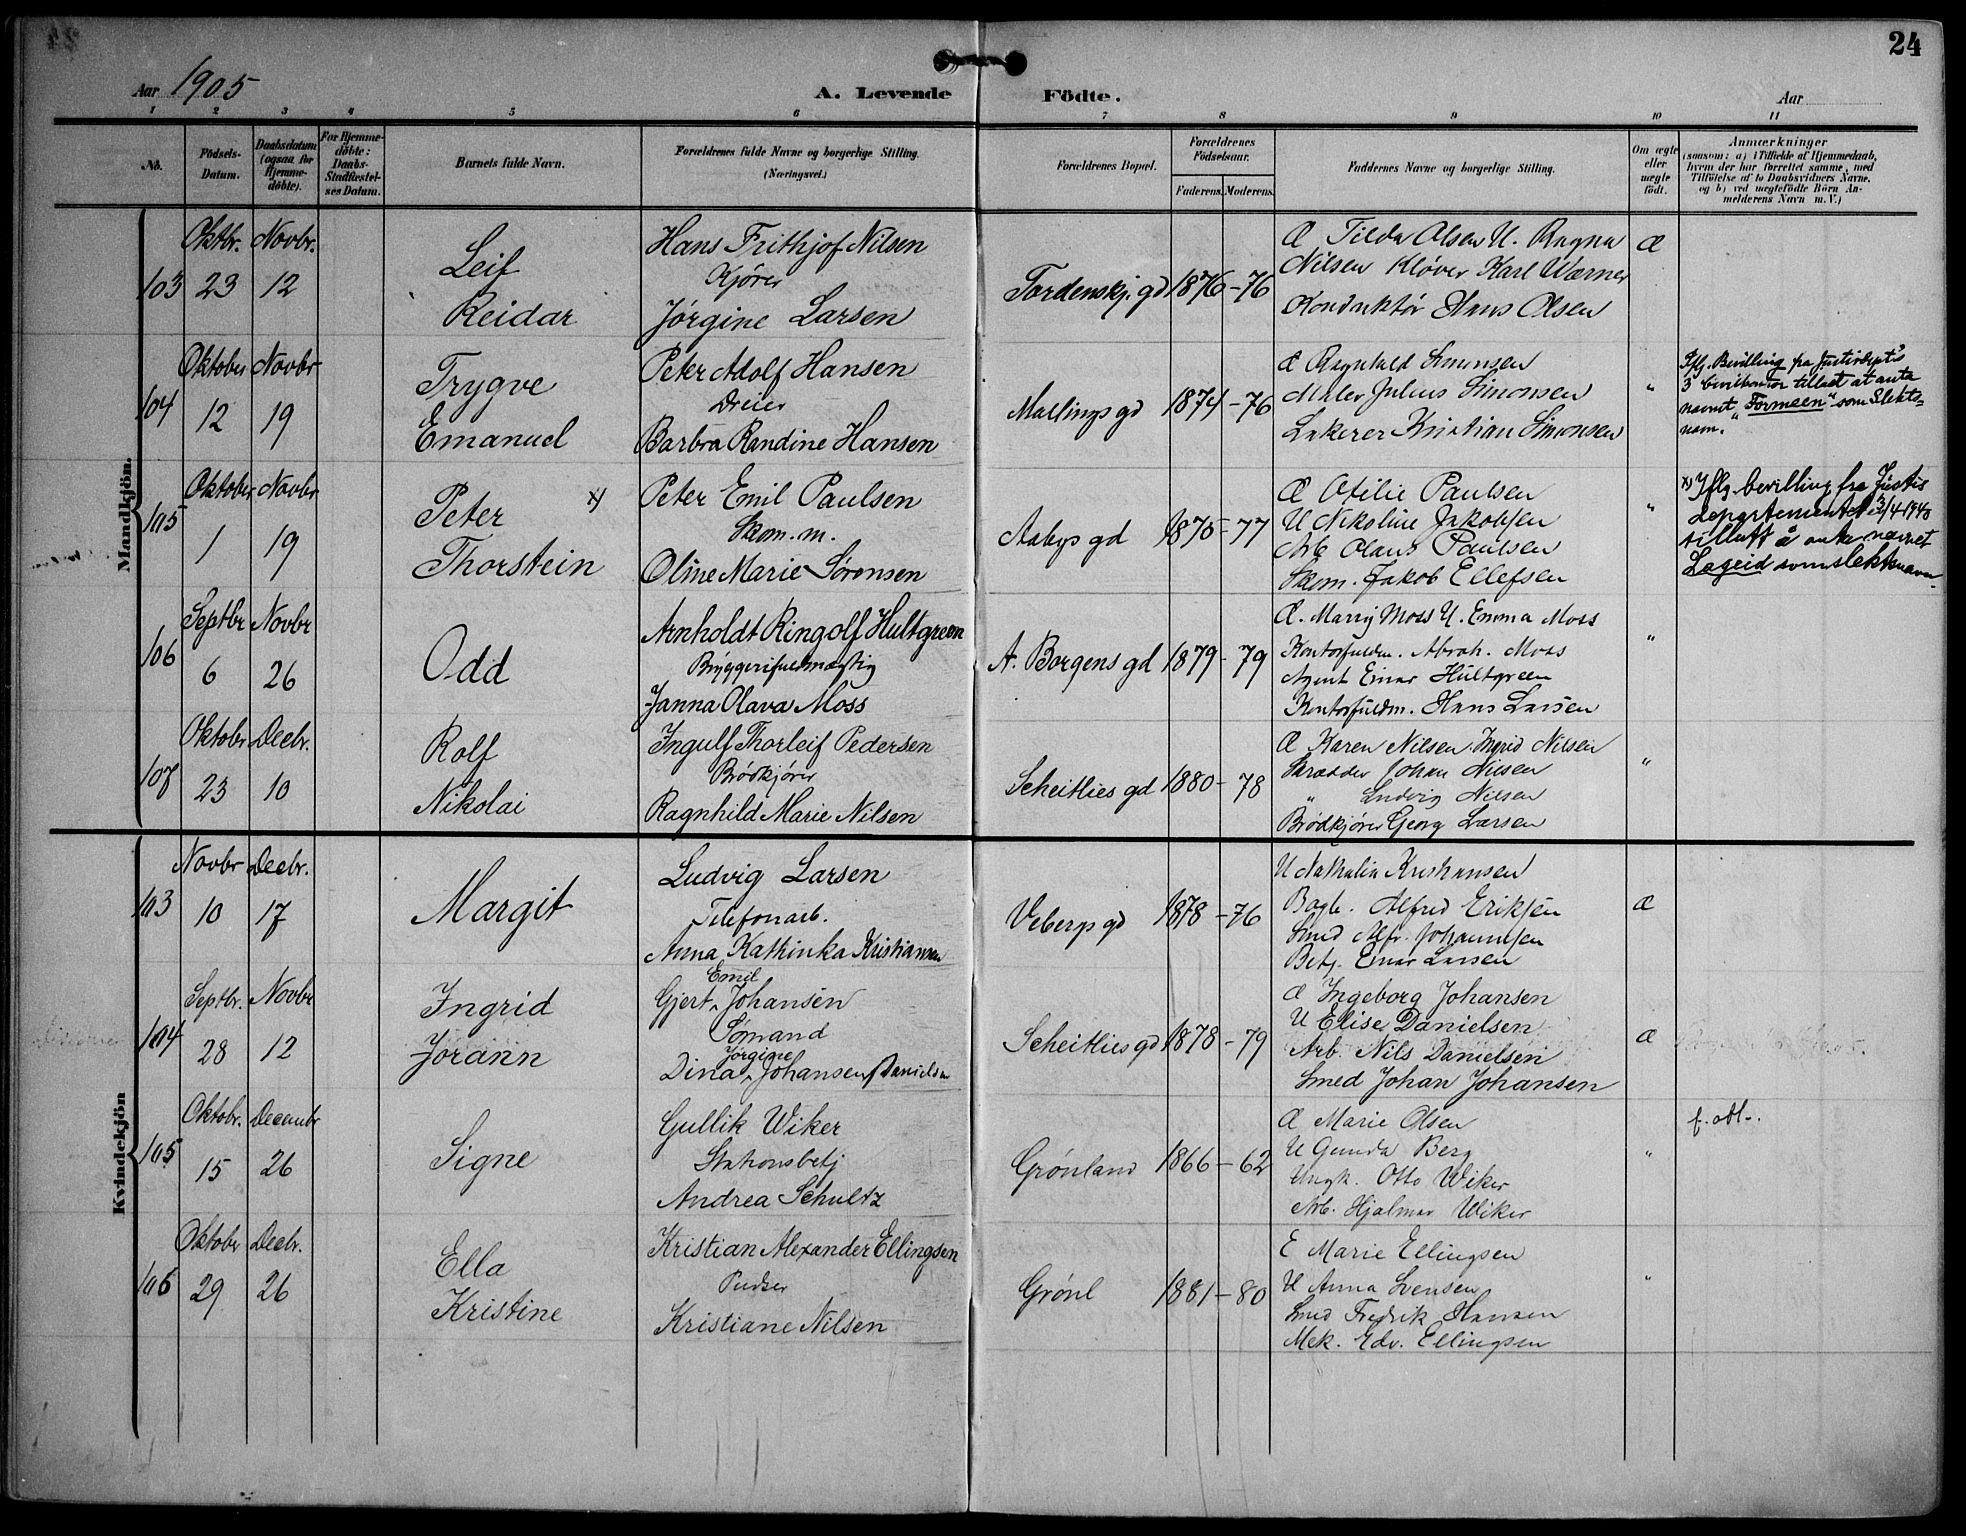 24
Aar 1905
A. Levende Födte.
Aar
1 2 3 4 5 6 7 8 9 10 11
No.
Födsels-Datum.
Daabsdatum (ogsaa for Hjemme-döbte).
For Hjemme-döbte: Daabs-Stadfæstel-ses Datum.
Barnets fulde Navn.
Forældrenes fulde Navne og borgerlige Stilling.
(Næringsvei.)
Forældrenes Bopæl.
Forældrenes Födselsaar.
Faderens. Moderens.
Faddernes Navne og borgerlige Stilling.
Om ægte eller uægte födt.
Anmærkninger
(saasom: a) i Tilfælde af Hjemmedaab,
hvem der har forrettet samme, med
Tilföielse af to Daabsvidners Navne,
og b) ved uægtefödte Börn An-
melderens Navn m. V.)
Mandkjön.
103
Oktbr. 23
Novbr. 12
Leif
Reidar
Hans Frithjof Nilsen
Kjører
Jørgine Larsen
Tordenskj. gd
1876-76
Æ Tilda Olsen U. Ragna
Nilsen Kløver Karl Wærner
Konduktør Hans Olsen
Æ
104
Oktober 12
Novbr 19
Trygve
Emanuel
Peter Adolf Hansen
Dreier
Barbra Randine Hansen
Mallings gd
1874-76
Æ Ragnhild Simonsen
Maler Julius Simonsen
Lakerer Kristian Simonsen
"
Iflg. Bevilling fra Justisdept's
3 tillatt at anta
navnet "Formoen" som Slekts-
navn.
105
Oktober 1
Novbr 19
Peter x)
Thorstein
Peter Emil Paulsen
Skom. m.
Oline Marie Sørensen
Aabys gd
1875-77
Æ Otilie Paulsen
U Nikoline Jakobsen
Arb Olaus Paulsen
Skom. Jakob Ellefsen
"
x) Iflg. bevilling fra Justis
Departementet
tillatt å anta navnet
Lagrid som slektsnavn
106
Septbr 6
Novbr 26
Odd
Arnholdt Ringolf Hultgreen
Bryggerifuldmægtig
Janna Olava Moss
A. Borgens gd
1879-79
Æ. Marry Moss U. Emma Moss
Kontorfuldm. Abrah. Moss
Agent Einar Hultgreen
Kontorfuldm. Hans Larsen
"
107
Oktober 23
Decbr. 10
Rolf
Nikolai
Ingulf Thorleif Pedersen
Brødkjører
Ragnhild Marie Nilsen
Scheitlies gd
1880-78
Æ Karen Nilsen Ingrid Nilsen
Skrædder Johan Nilsen
" Ludvig Nilsen
Brødkjører Georg Larsen
"
Kvindekjön
103
Novbr 10
Decbr. 17
Margit
Ludvig Larsen
Telefonarb.
Anna Kathinka Kristiansen
Vebergs gd
1878-76
U Nathalia Kristiansen
Bagb. Alfred Eriksen
Smed Alfr. Johannsen
Betj. Einar Larsen
Æ
104
Septbr. 28
Novbr 12
Ingrid
Jorann
Emil
Gjert Johansen
Sømand
Jørgine
Dina Johansen f Danielsen
Scheitlies gd
1878-79
Æ Ingeborg Johansen
U Elise Danielsen
Arb. Nils Danielsen
Smed Johan Johansen
Æ
105
Oktobr. 15
Decembr 26
Signe
Gullik Wiker
Stationsbetj
Andrea Schultz
Grønland
1866-62
Æ Marie Olsen
U Gunda Berg
Ungk. Otto Wiker
Arb. Hjalmar Wiker
"
f. att.
106
Oktober 29
Decbr. 26
Ella
Kristine
Kristian Alexander Ellingsen
Pudser
Kristiane Nilsen
Grønl
1881-80
E Marie Ellingsen
U Anna Svensen
Smed Fredrik Hansen
Mek. Edv. Ellingsen
"